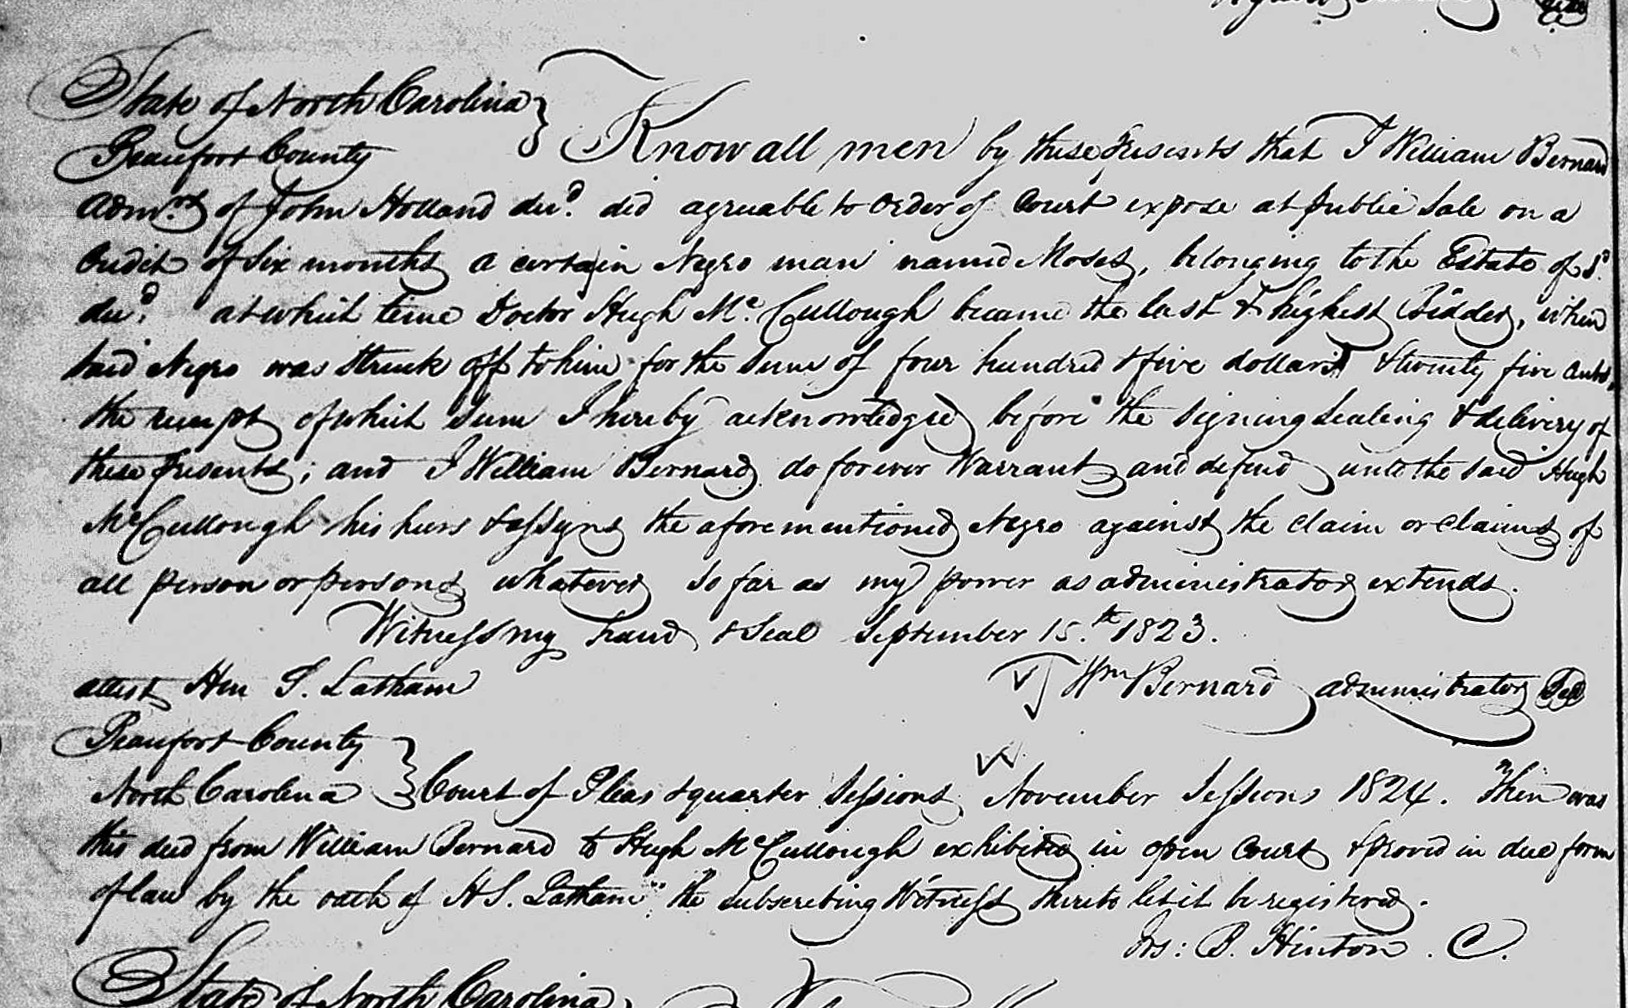 State of North Carolina
Beaufort County } Know all men by these presents that I William Bernard
Admr. of John Holland decd. did agreable to order of Court expose at public Sale on a
Credit of six months a certain Negro man named Moses, belonging to the Estate of sd.
decd. at which time Doctor Hugh Mc.Cullough became the last & highest Bidder, when
said Negro was struck off to him for the sum of four hundred & five dollars & twenty five cents,
the receipt of which sum I hereby acknowledged before the signing sealing & delivery of
these presents; and I William Bernard do forever Warrant and defend unto the said Hugh
McCullough his heirs & assigns the aforementioned Negro against the claim or claims of
all person or persons whatever so far as my power as administrator extends.
Witness my hand & Seal September 15.th 1823.
attest Hen S. Latham Wm Bernard administrator Seal
Beaufort County
North Carolina } Court of Pleas & quarter Sessions, November Sessions 1824. Then was
this deed from William Bernard to Hugh McCullough exhibited in open Court & proved in due form
of law by the oath of H S. Latham the subscribing Witness thereto let it be registered.
Jos: B. Hinton. C.
State of North Carolina